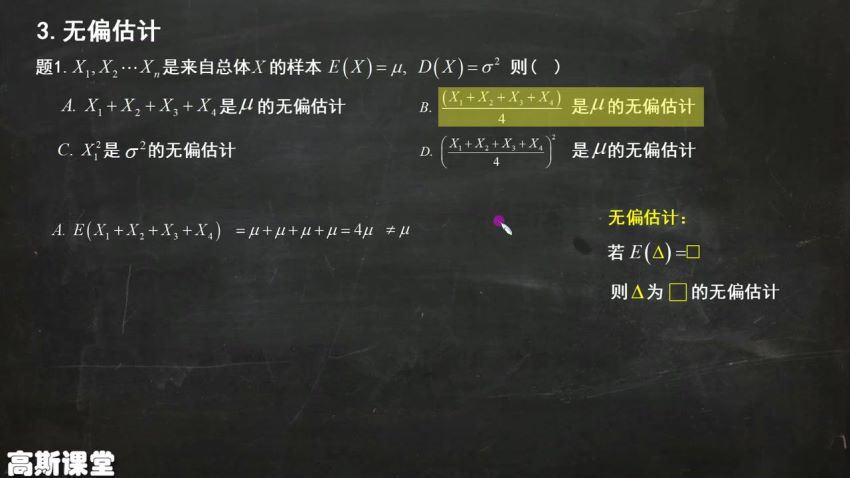 3. 无偏估计
题1. X₁, X₂ ⋯ Xₙ 是来自总体X的样本 E(X)=μ, D(X)=σ² 则( )
A. X₁+X₂+X₃+X₄是μ的无偏估计 B. (X₁+X₂+X₃+X₄)/4 是μ的无偏估计
C. X₁²是σ²的无偏估计 D. ((X₁+X₂+X₃+X₄)/4)² 是μ的无偏估计
A. E(X₁+X₂+X₃+X₄) =μ+μ+μ+μ=4μ ≠μ
无偏估计：
若 E(Δ)=□
则Δ为□的无偏估计
高斯课堂